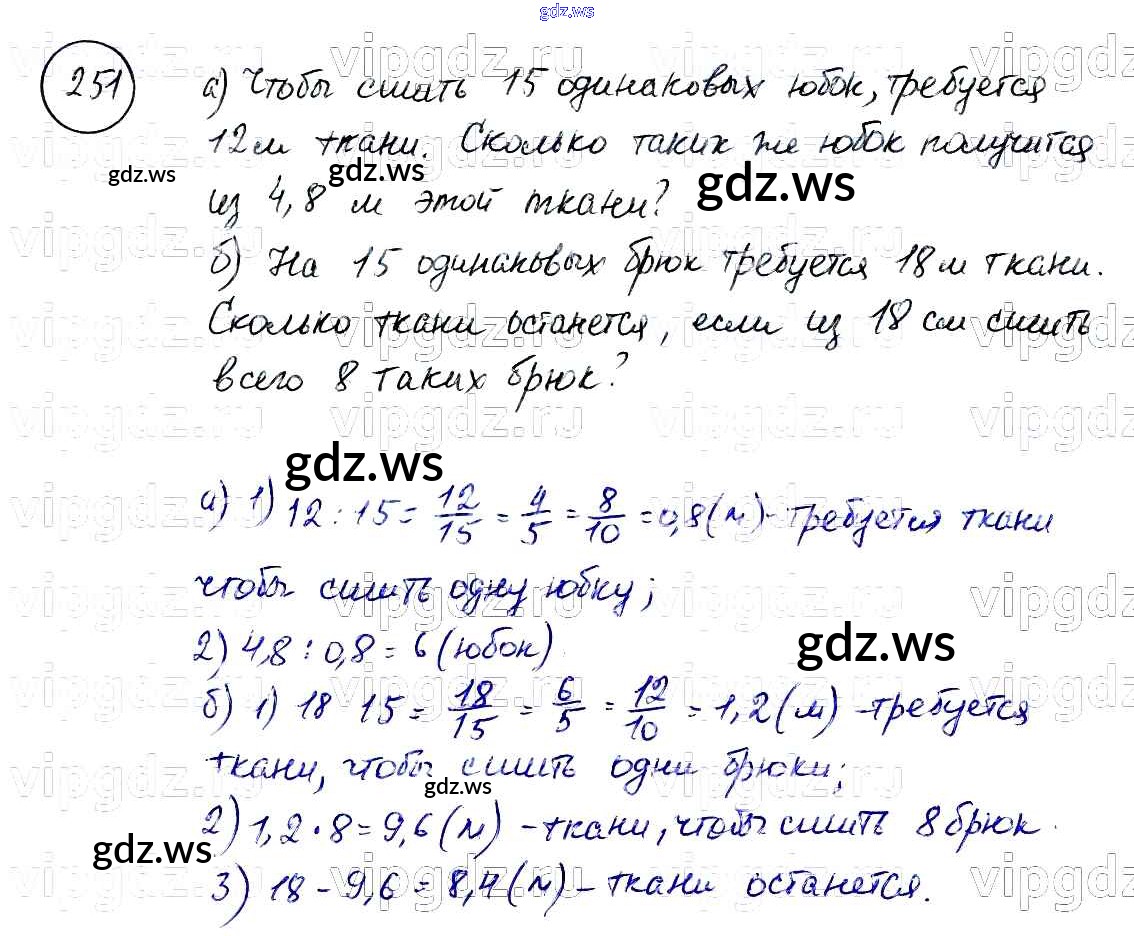 gdz.ws
251
а) Чтобы сшить 15 одинаковых юбок, требуется
12м ткани. Сколько таких же юбок получится
из 4,8 м этой ткани?
б) На 15 одинаковых брюк требуется 18м ткани.
Сколько ткани останется, если из 18 см сшить
всего 8 таких брюк?
gdz.ws
gdz.ws
gdz.ws
gdz.ws
а) 1) 12 : 15 = 12/15 = 4/5 = 8/10 = 0,8 (м) - требуется ткани
чтобы сшить одну юбку;
2) 4,8 : 0,8 = 6 (юбок)
gdz.ws
б) 1) 18 15 = 18/15 = 6/5 = 12/10 = 1,2 (м) - требуется
ткани, чтобы сшить одни брюки;
gdz.ws
2) 1,2 · 8 = 9,6 (м) - ткани, чтобы сшить 8 брюк.
gdz.ws
3) 18 - 9,6 = 8,4 (м) - ткани останется.
vipgdz.ru